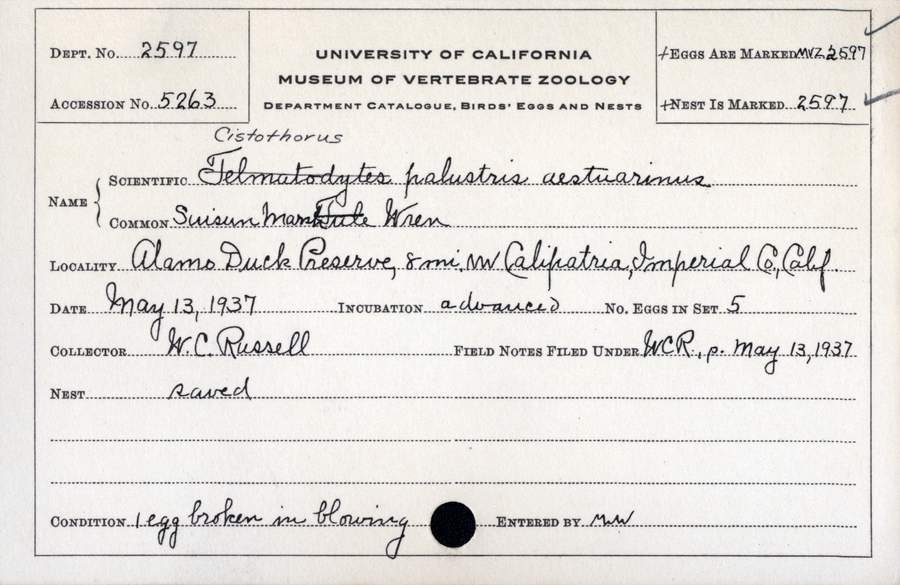 DEPT. NO. 2597
ACCESSION NO. 5263
UNIVERSITY OF CALIFORNIA
MUSEUM OF VERTEBRATE ZOOLOGY
DEPARTMENT CATALOGUE, BIRDS' EGGS AND NESTS
+EGGS ARE MARKED MVZ 2597
+NEST IS MARKED 2597
Cistothorus
NAME
SCIENTIFIC Telmatodytes palustris aestuarinus
COMMON Suisun Marsh Tule Wren
LOCALITY Alamo Duck Preserve, 8 mi. NW Calipatria, Imperial Co., Calif.
DATE May 13, 1937 INCUBATION advanced NO. EGGS IN SET 5
COLLECTOR W.C. Russell FIELD NOTES FILED UNDER WCR., p. May 13, 1937
NEST saved
CONDITION 1 egg broken in blowing ENTERED BY